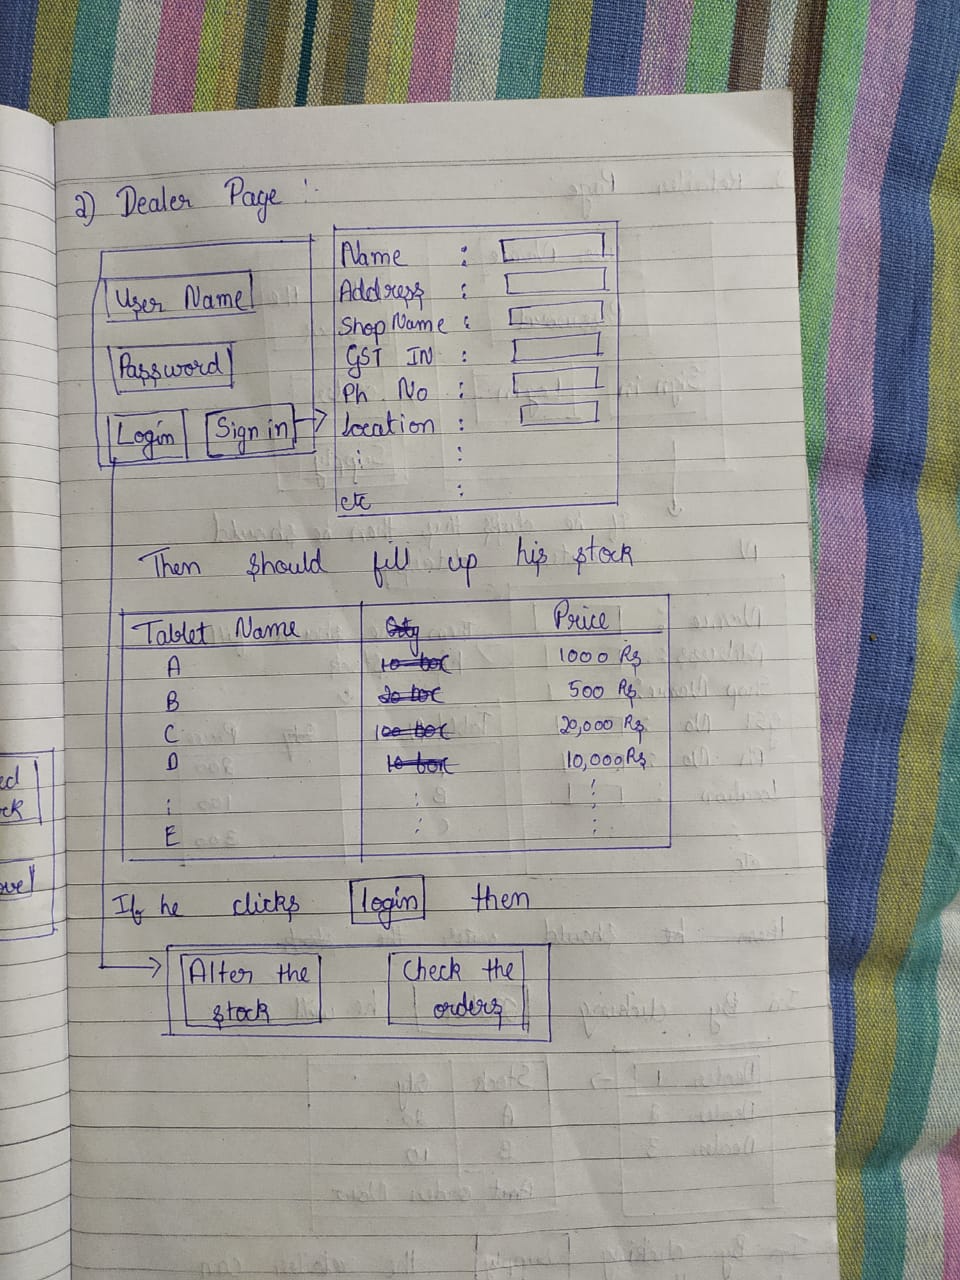 2) Dealer Page :-
User Name
Password
Login Sign in
Name :
Address :
Shop Name :
GST IN :
Ph No :
Location :
: :
etc :
Then should fill up his stock
Tablet Name Qty Price
A 10 box 1000 Rs
B 20 box 500 Rs
C 100 box 20,000 Rs
D 10 box 10,000 Rs
: : :
E : :
If he clicks login then
Alter the stock
Check the orders